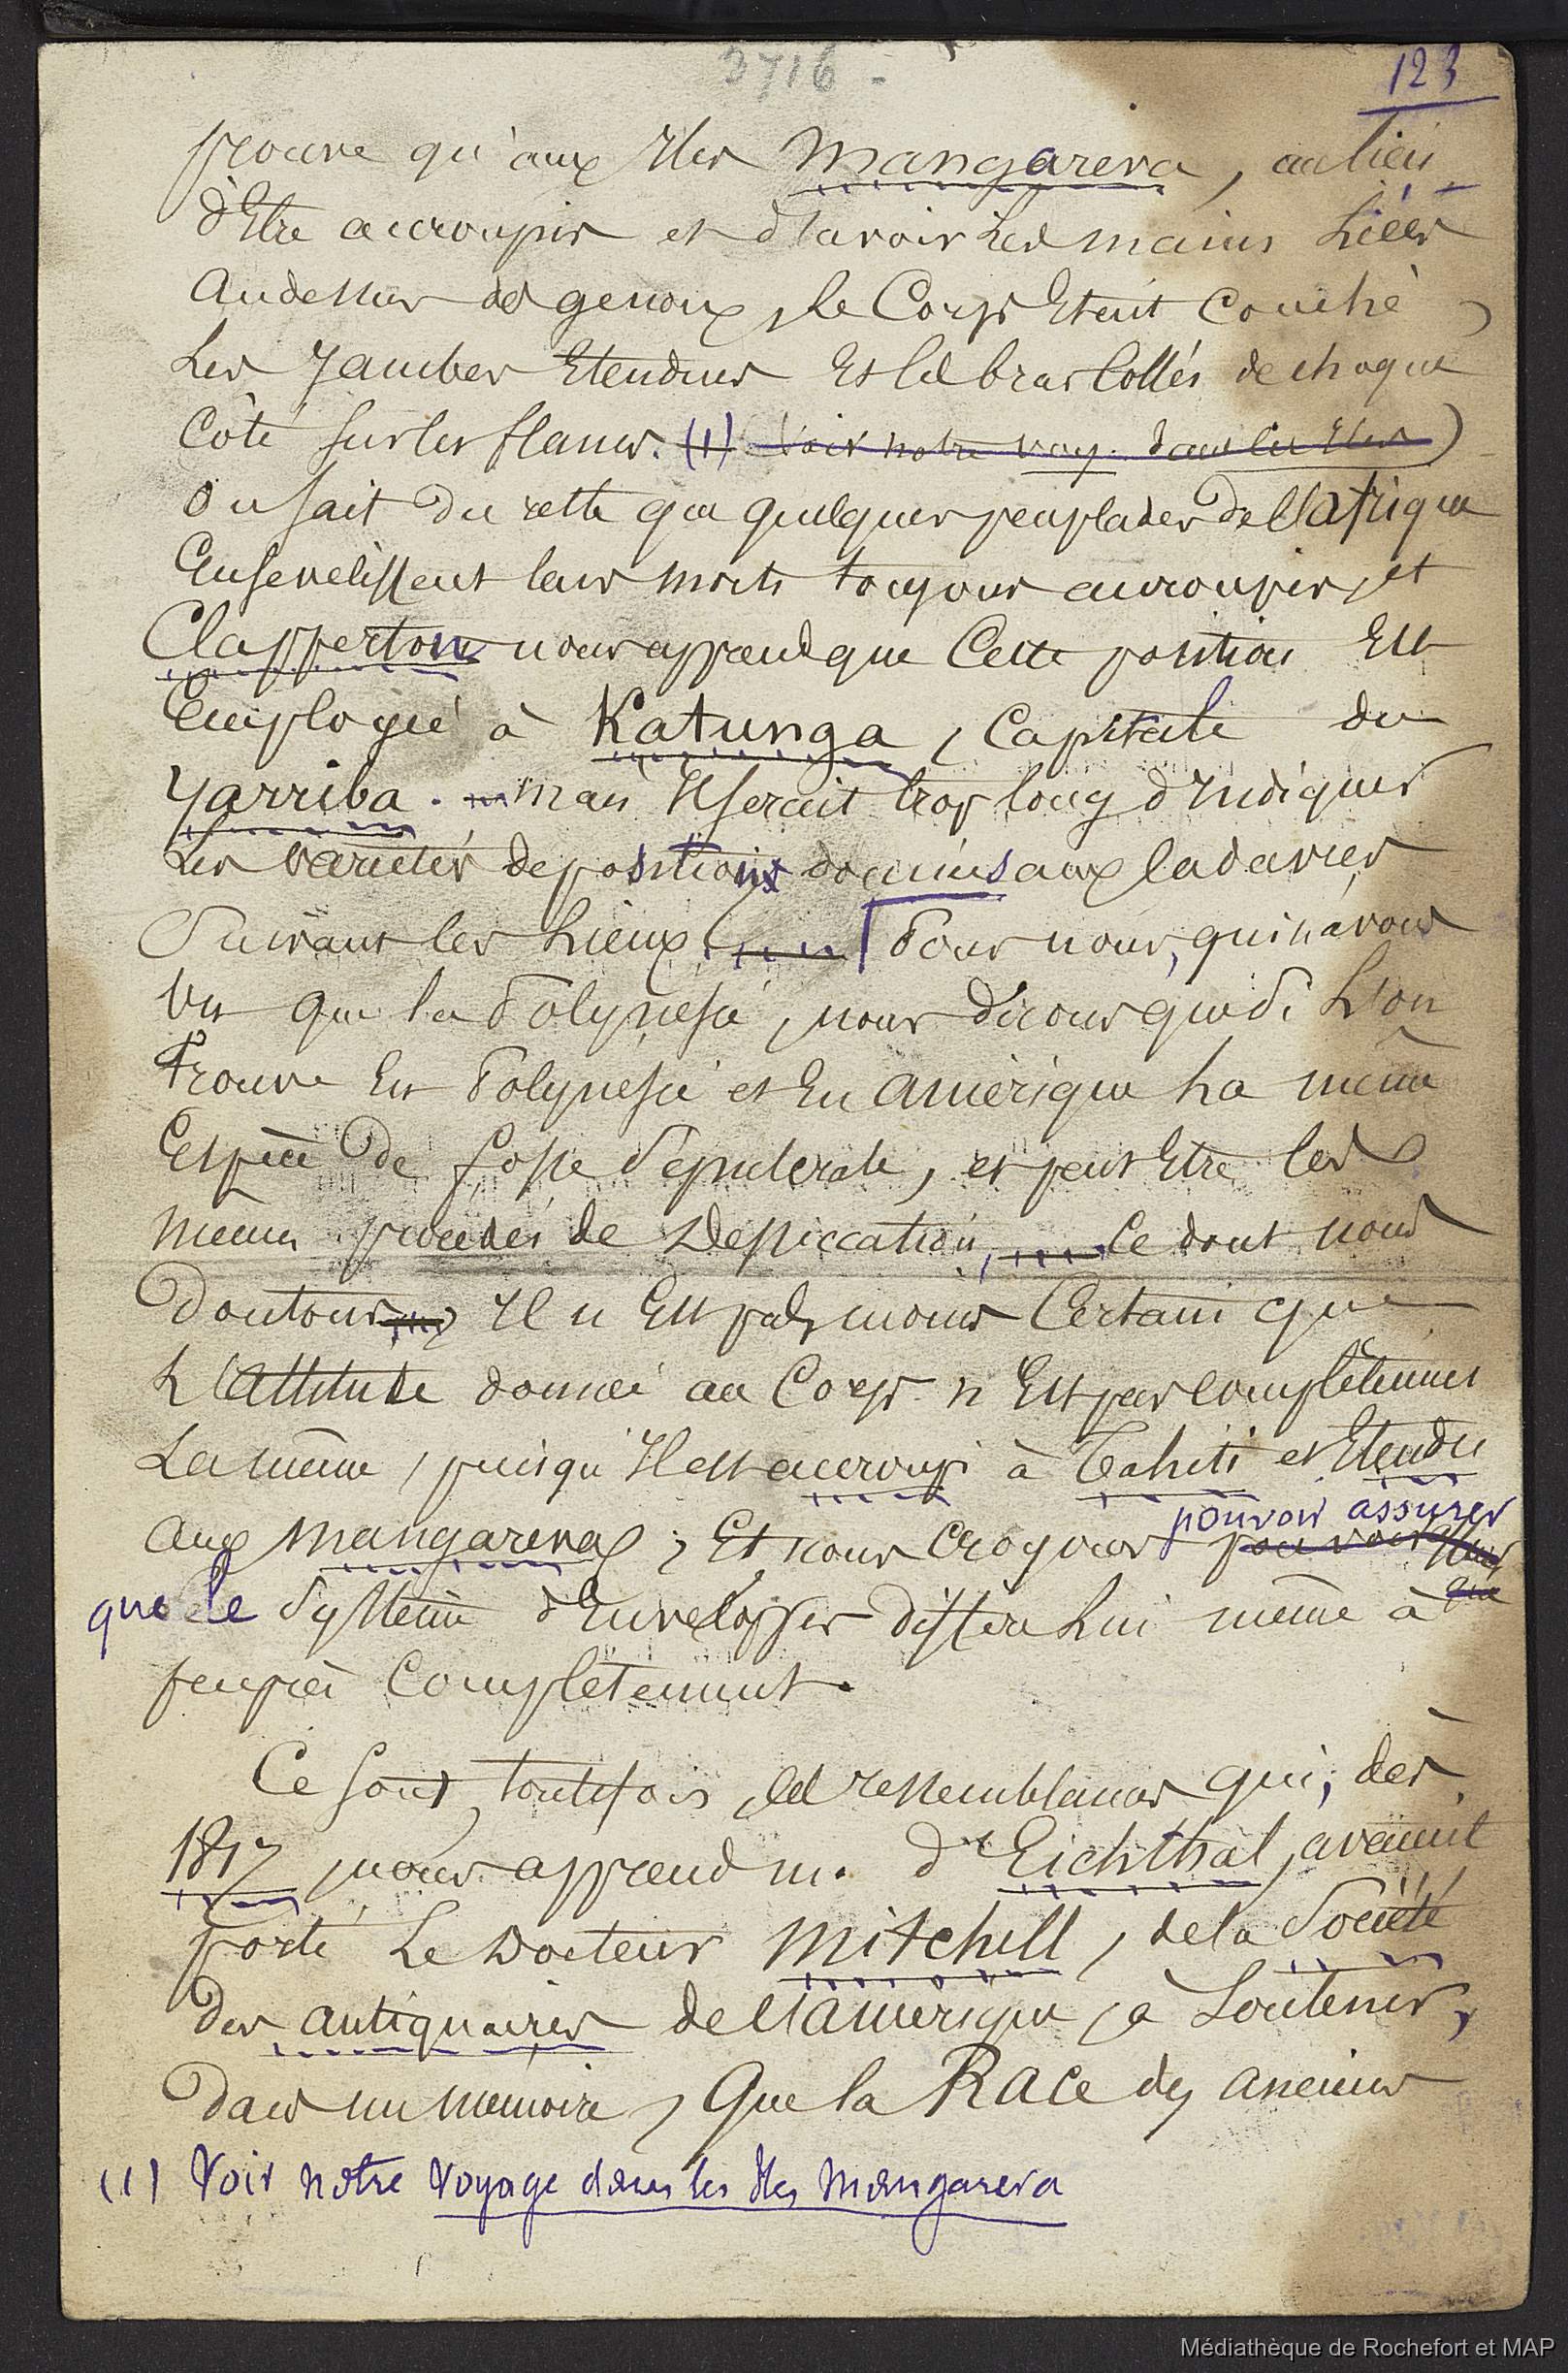 3716 -
123
prouve qu'aux Iles Mangareva, au lieu
d'Etre accroupis et d'avoir les mains liées
audessus des genoux, le Corps Etait Couché,
les Jambes Etendues Et les bras Collés de chaque
Côté sur les flancs. (1) (voir notre voy. dans les Iles)
On sait du reste que quelques peuplades de l'afrique
Ensevelissent leurs morts toujours accroupis, et
Clapperton nous apprend que Cette position Est
Employée à Katunga, Capitale du
Yarriba. mais Il serait trop long d'Indiquer
Les variétés de positions données aux Cadavres
Suivant les Lieux. Pour nous, qui n'avons
Vu que la Polynesie, nous dirons que Si L'on
trouve En Polynesie et En amérique La même
Espèce de fosse Sépulcrale, et peut Etre les
mêmes procédés de Dessiccation, Ce dont nous
Doutons, Il n'Est pas moins Certain que
L'attitude donnée au Corps n'Est pas Complètement
La même, puisqu'Il est accroupi à Tahiti et Etendu
aux Mangareva; Et nous Croyons pouvoir assurer
que le Système d'Envelopper diffère Lui même à
peuprès Complètement.
Ce sont, toutefois, les ressemblances qui, dès
1817, nous apprend m. d'Eichthal, avaient
porté Le Docteur Mitchill, de la Société
des antiquaires de l'amérique, à Soutenir,
dans un memoire, Que la Race des anciens
(1) Voir notre Voyage dans les Iles Mangareva
Médiathèque de Rochefort et MAP